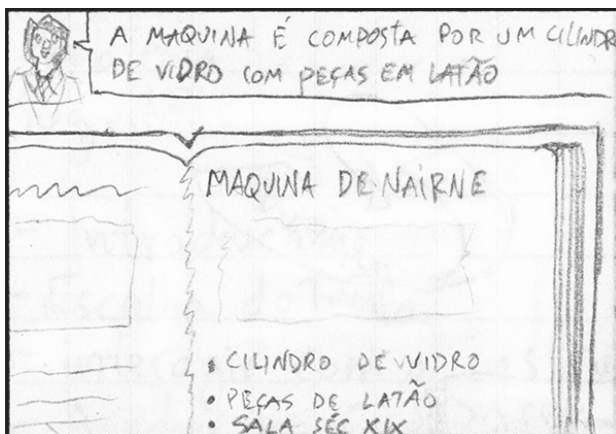 A MAQUINA É COMPOSTA POR UM CILINDRO
DE VIDRO COM PEÇAS EM LATÃO
MAQUINA DE NAIRNE
• CILINDRO DE VIDRO
• PEÇAS DE LATÃO
• SALA SÉC XIX